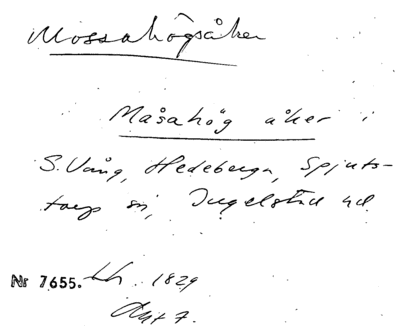 Mossahögsåker
Måsahög åker i
S. Vång, Hedeberga, Spjuts-
torp sn, Ingelstad hd
Nr 7655. Lh. 1829
Akt 7.